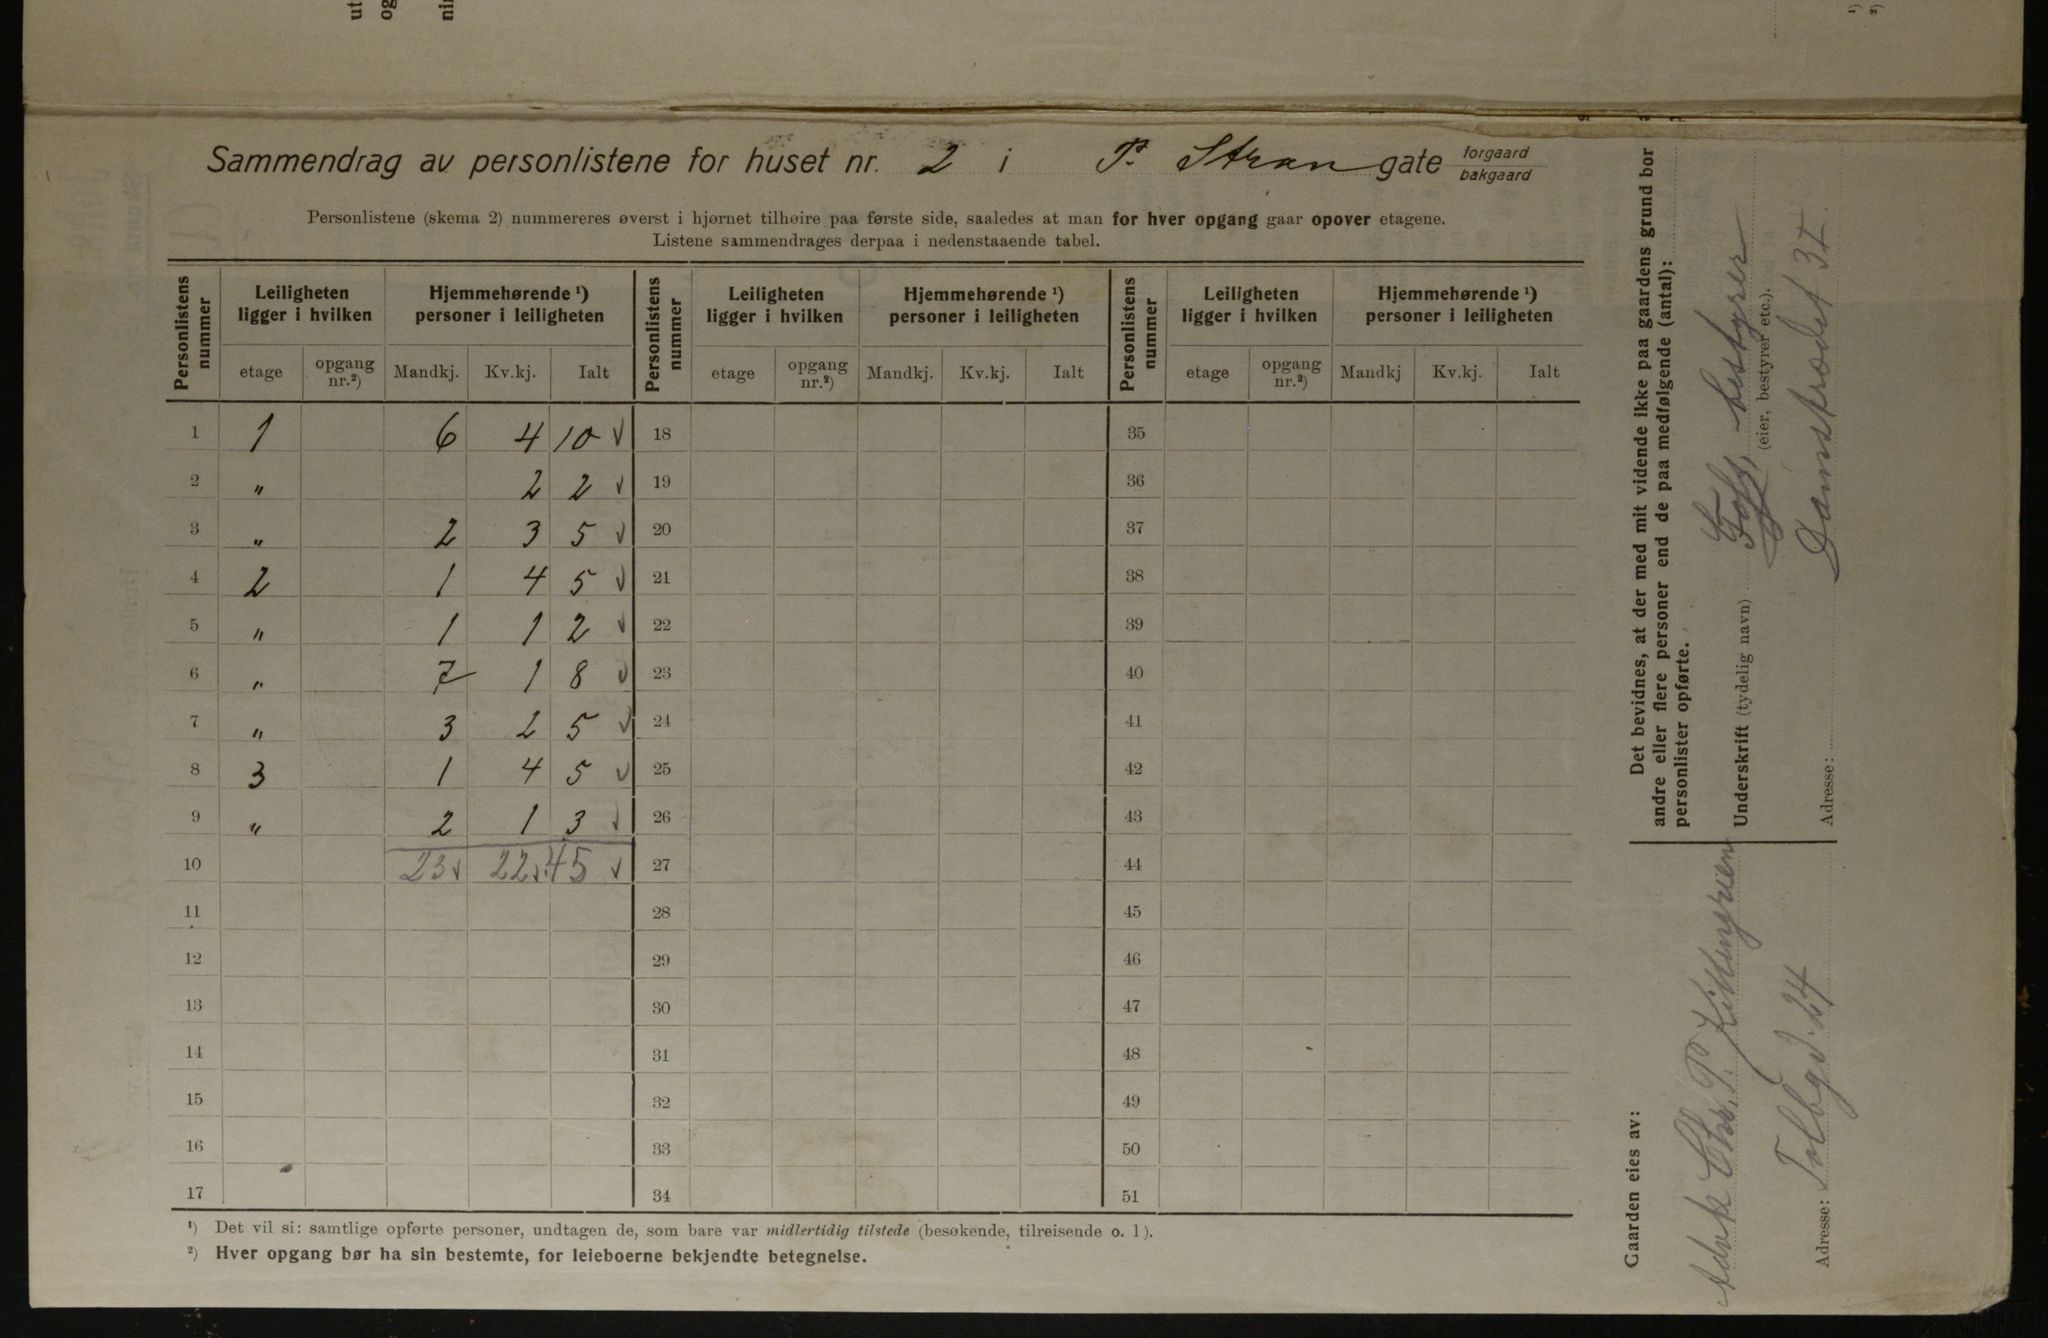 Sammendrag av personlistene for huset nr. 2 i P. Stran gate forgaard / bakgaard
Personlistene (skema 2) nummereres øverst i hjørnet tilhøire paa første side, saaledes at man for hver opgang gaar opover etagene.
Listene sammendrages derpaa i nedenstaaende tabel.
Personlistens nummer | Leiligheten ligger i hvilken | Hjemmehørende ¹) personer i leiligheten | Personlistens nummer | Leiligheten ligger i hvilken | Hjemmehørende ¹) personer i leiligheten | Personlistens nummer | Leiligheten ligger i hvilken | Hjemmehørende ¹) personer i leiligheten
etage | opgang nr.²) | Mandkj. | Kv.kj. | Ialt | etage | opgang nr.²) | Mandkj. | Kv.kj. | Ialt | etage | opgang nr.²) | Mandkj | Kv.kj. | Ialt
1 | 1 | 6 | 4 | 10 ✓ | 18 | 35
2 | " | 2 | 2 ✓ | 19 | 36
3 | " | 2 | 3 | 5 ✓ | 20 | 37
4 | 2 | 1 | 4 | 5 ✓ | 21 | 38
5 | " | 1 | 1 | 2 ✓ | 22 | 39
6 | " | 7 | 1 | 8 ✓ | 23 | 40
7 | " | 3 | 2 | 5 ✓ | 24 | 41
8 | 3 | 1 | 4 | 5 ✓ | 25 | 42
9 | " | 2 | 1 | 3 ✓ | 26 | 43
10 | 23 ✓ | 22 ✓ | 45 ✓ | 27 | 44
11 | 28 | 45
12 | 29 | 46
13 | 30 | 47
14 | 31 | 48
15 | 32 | 49
16 | 33 | 50
17 | 34 | 51
¹) Det vil si: samtlige opførte personer, undtagen de, som bare var midlertidig tilstede (besøkende, tilreisende o. l).
²) Hver opgang bør ha sin bestemte, for leieboerne bekjendte betegnelse.
Det bevidnes, at der med mit vidende ikke paa gaardens grund bor
andre eller flere personer end de paa medfølgende (antal):
personlister opførte.
Underskrift (tydelig navn) bestyrer
(eier, bestyrer etc.).
Adresse: Damstrædet
Gaarden eies av:
Chr. P.
Adresse: Tolbgd. 24